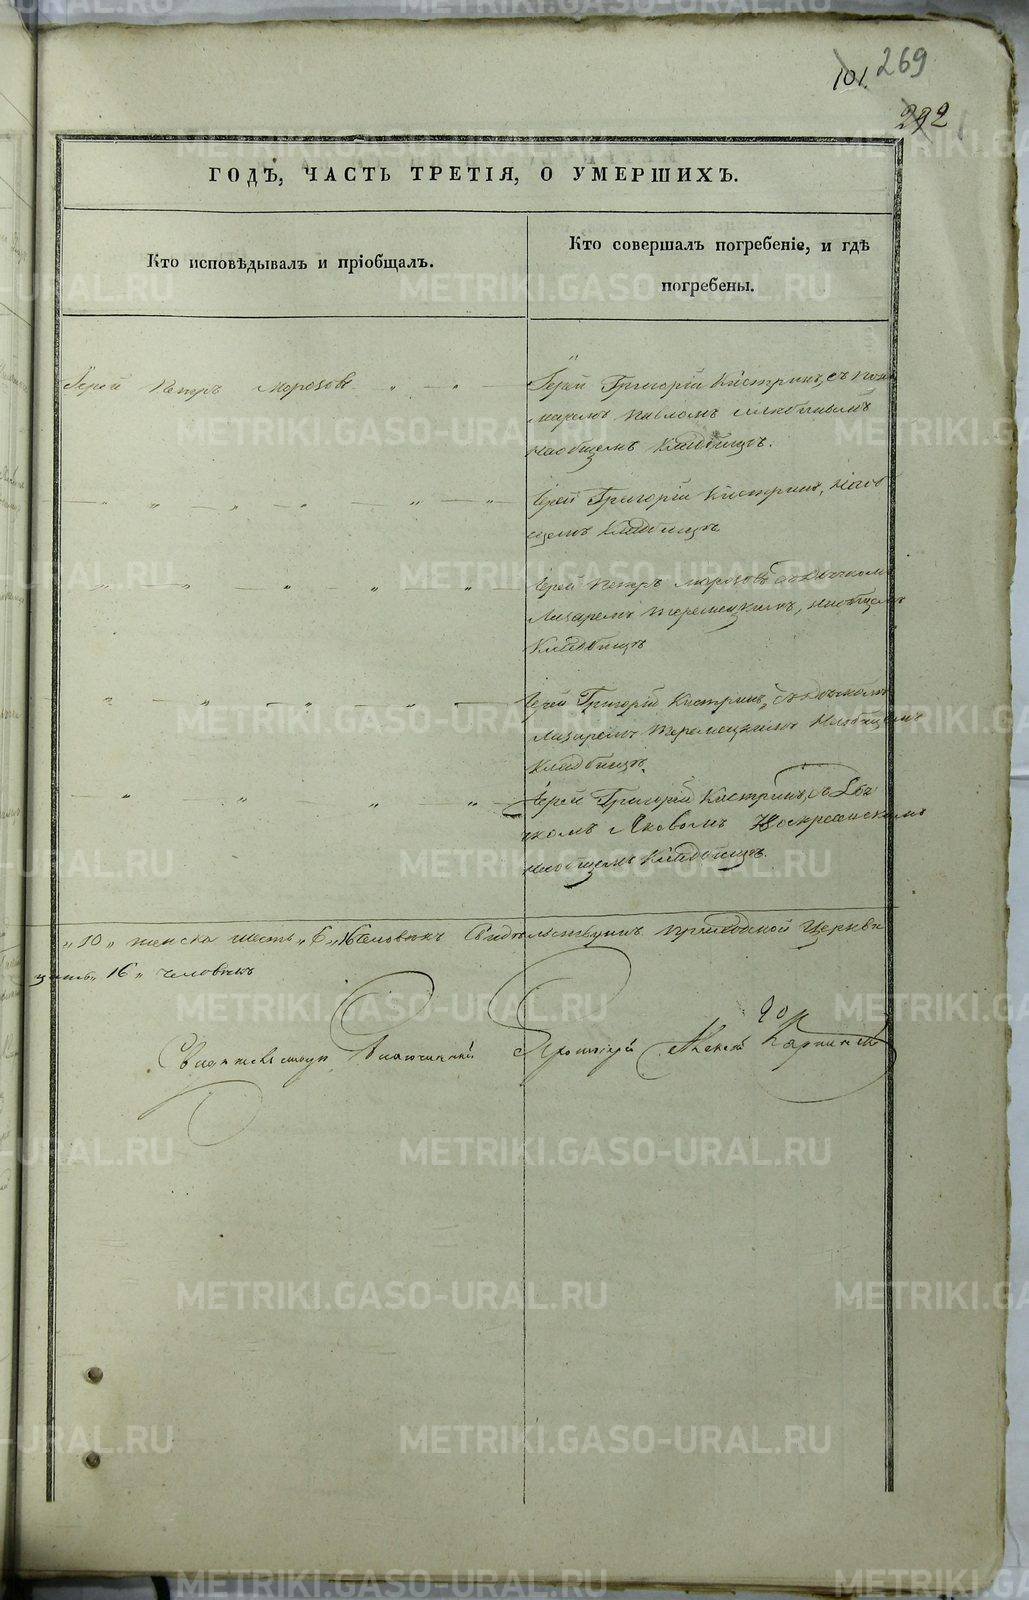 101. 269
292
ГОДѢ, ЧАСТЬ ТРЕТІЯ, О УМЕРШИХЪ.
Кто исповѣдывалъ и пріобщалъ.
Кто совершалъ погребеніе, и гдѣ
погребены.
Іерей Петръ Морозовъ
Іерей Григорій Кистринъ, съ поно
маремъ Павломъ
на общемъ Кладбищѣ.
Іерей Григорій Кистринъ, на об
щемъ Кладбищѣ
Іерей Петръ Морозовъ съ дьячкомъ
Лазаремъ, на общемъ
Кладбищѣ
Іерей Григорій Кистринъ, съ дьячкомъ
Лазаремъ на общемъ
Кладбищѣ.
Іерей Григорій Кистринъ, съ Дья
чкомъ Яковомъ Воскресенскимъ
на общемъ Кладбищѣ.
„10„ женска шесть „6„ 16 человѣкъ Свидѣтельствуемъ приходской Церкви
цать „16„ человѣкъ
Свидѣтельствуи Благочинный Протоіерей Алексѣй Карпинскій
METRIKI.GASO-URAL.RU